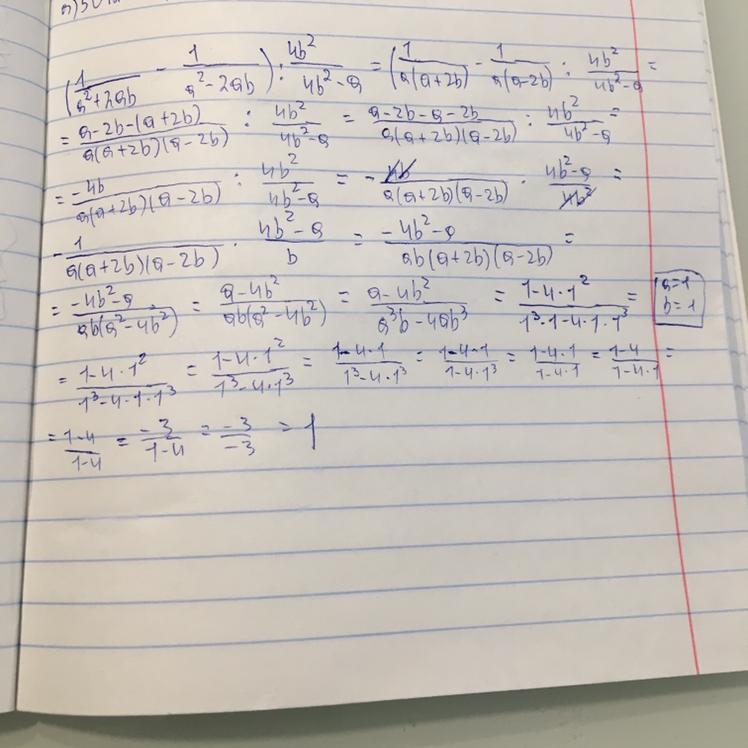 (1/(a²+2ab) - 1/(a²-2ab)) : 4b²/(4b²-a) = (1/(a(a+2b)) - 1/(a(a-2b)) : 4b²/(4b²-a) =
= (a-2b-(a+2b))/(a(a+2b)(a-2b)) : 4b²/(4b²-a) = (a-2b-a-2b)/(a(a+2b)(a-2b)) : 4b²/(4b²-a) =
= -4b/(a(a+2b)(a-2b)) : 4b²/(4b²-a) = - 4b/(a(a+2b)(a-2b)) · (4b²-a)/4b² =
- 1/(a(a+2b)(a-2b)) · (4b²-a)/b = (-4b²-a)/(ab(a+2b)(a-2b)) =
= (-4b²-a)/(ab(a²-4b²)) = (a-4b²)/(ab(a²-4b²)) = (a-4b²)/(a³b-4ab³) = (1-4·1²)/(1³·1-4·1·1³) = a=1 b=1
= (1-4·1²)/(1³-4·1·1³) = (1-4·1²)/(1³-4·1³) = (1-4·1)/(1³-4·1³) = (1-4·1)/(1-4·1³) = (1-4·1)/(1-4·1) = (1-4)/(1-4·1) =
= (1-4)/(1-4) = -3/(1-4) = -3/-3 = 1